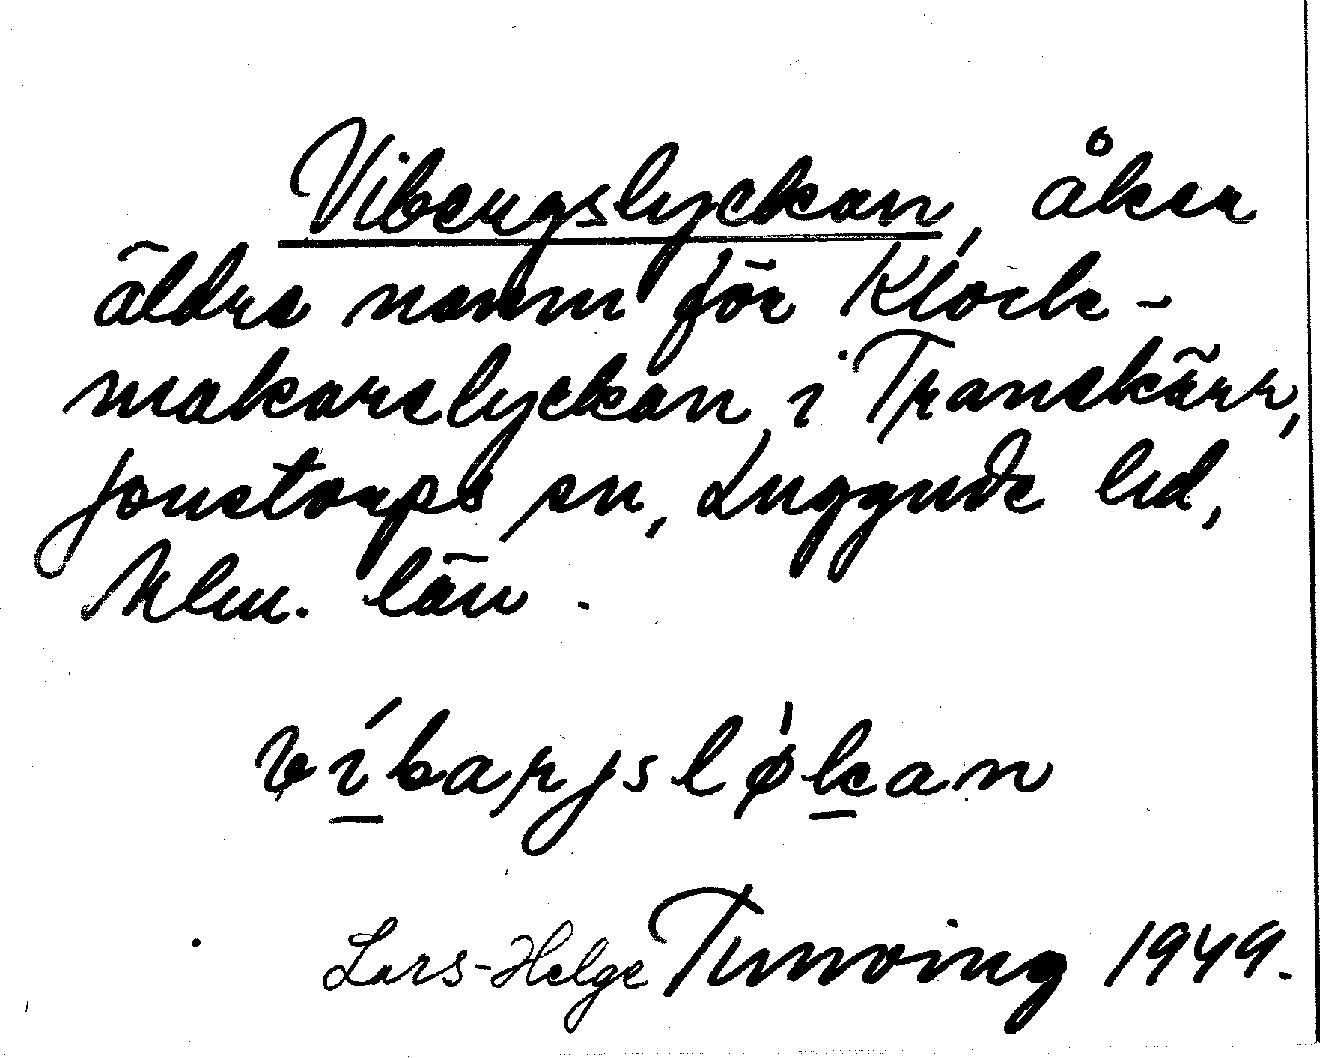 Vibergslyckan, åker
äldre namn för Klock-
makarelyckan i Transkärr,
Jonstorps sn, Luggude hd,
Mlm. län.
víbarjsløkan
Lars-Helge Tunving 1949.